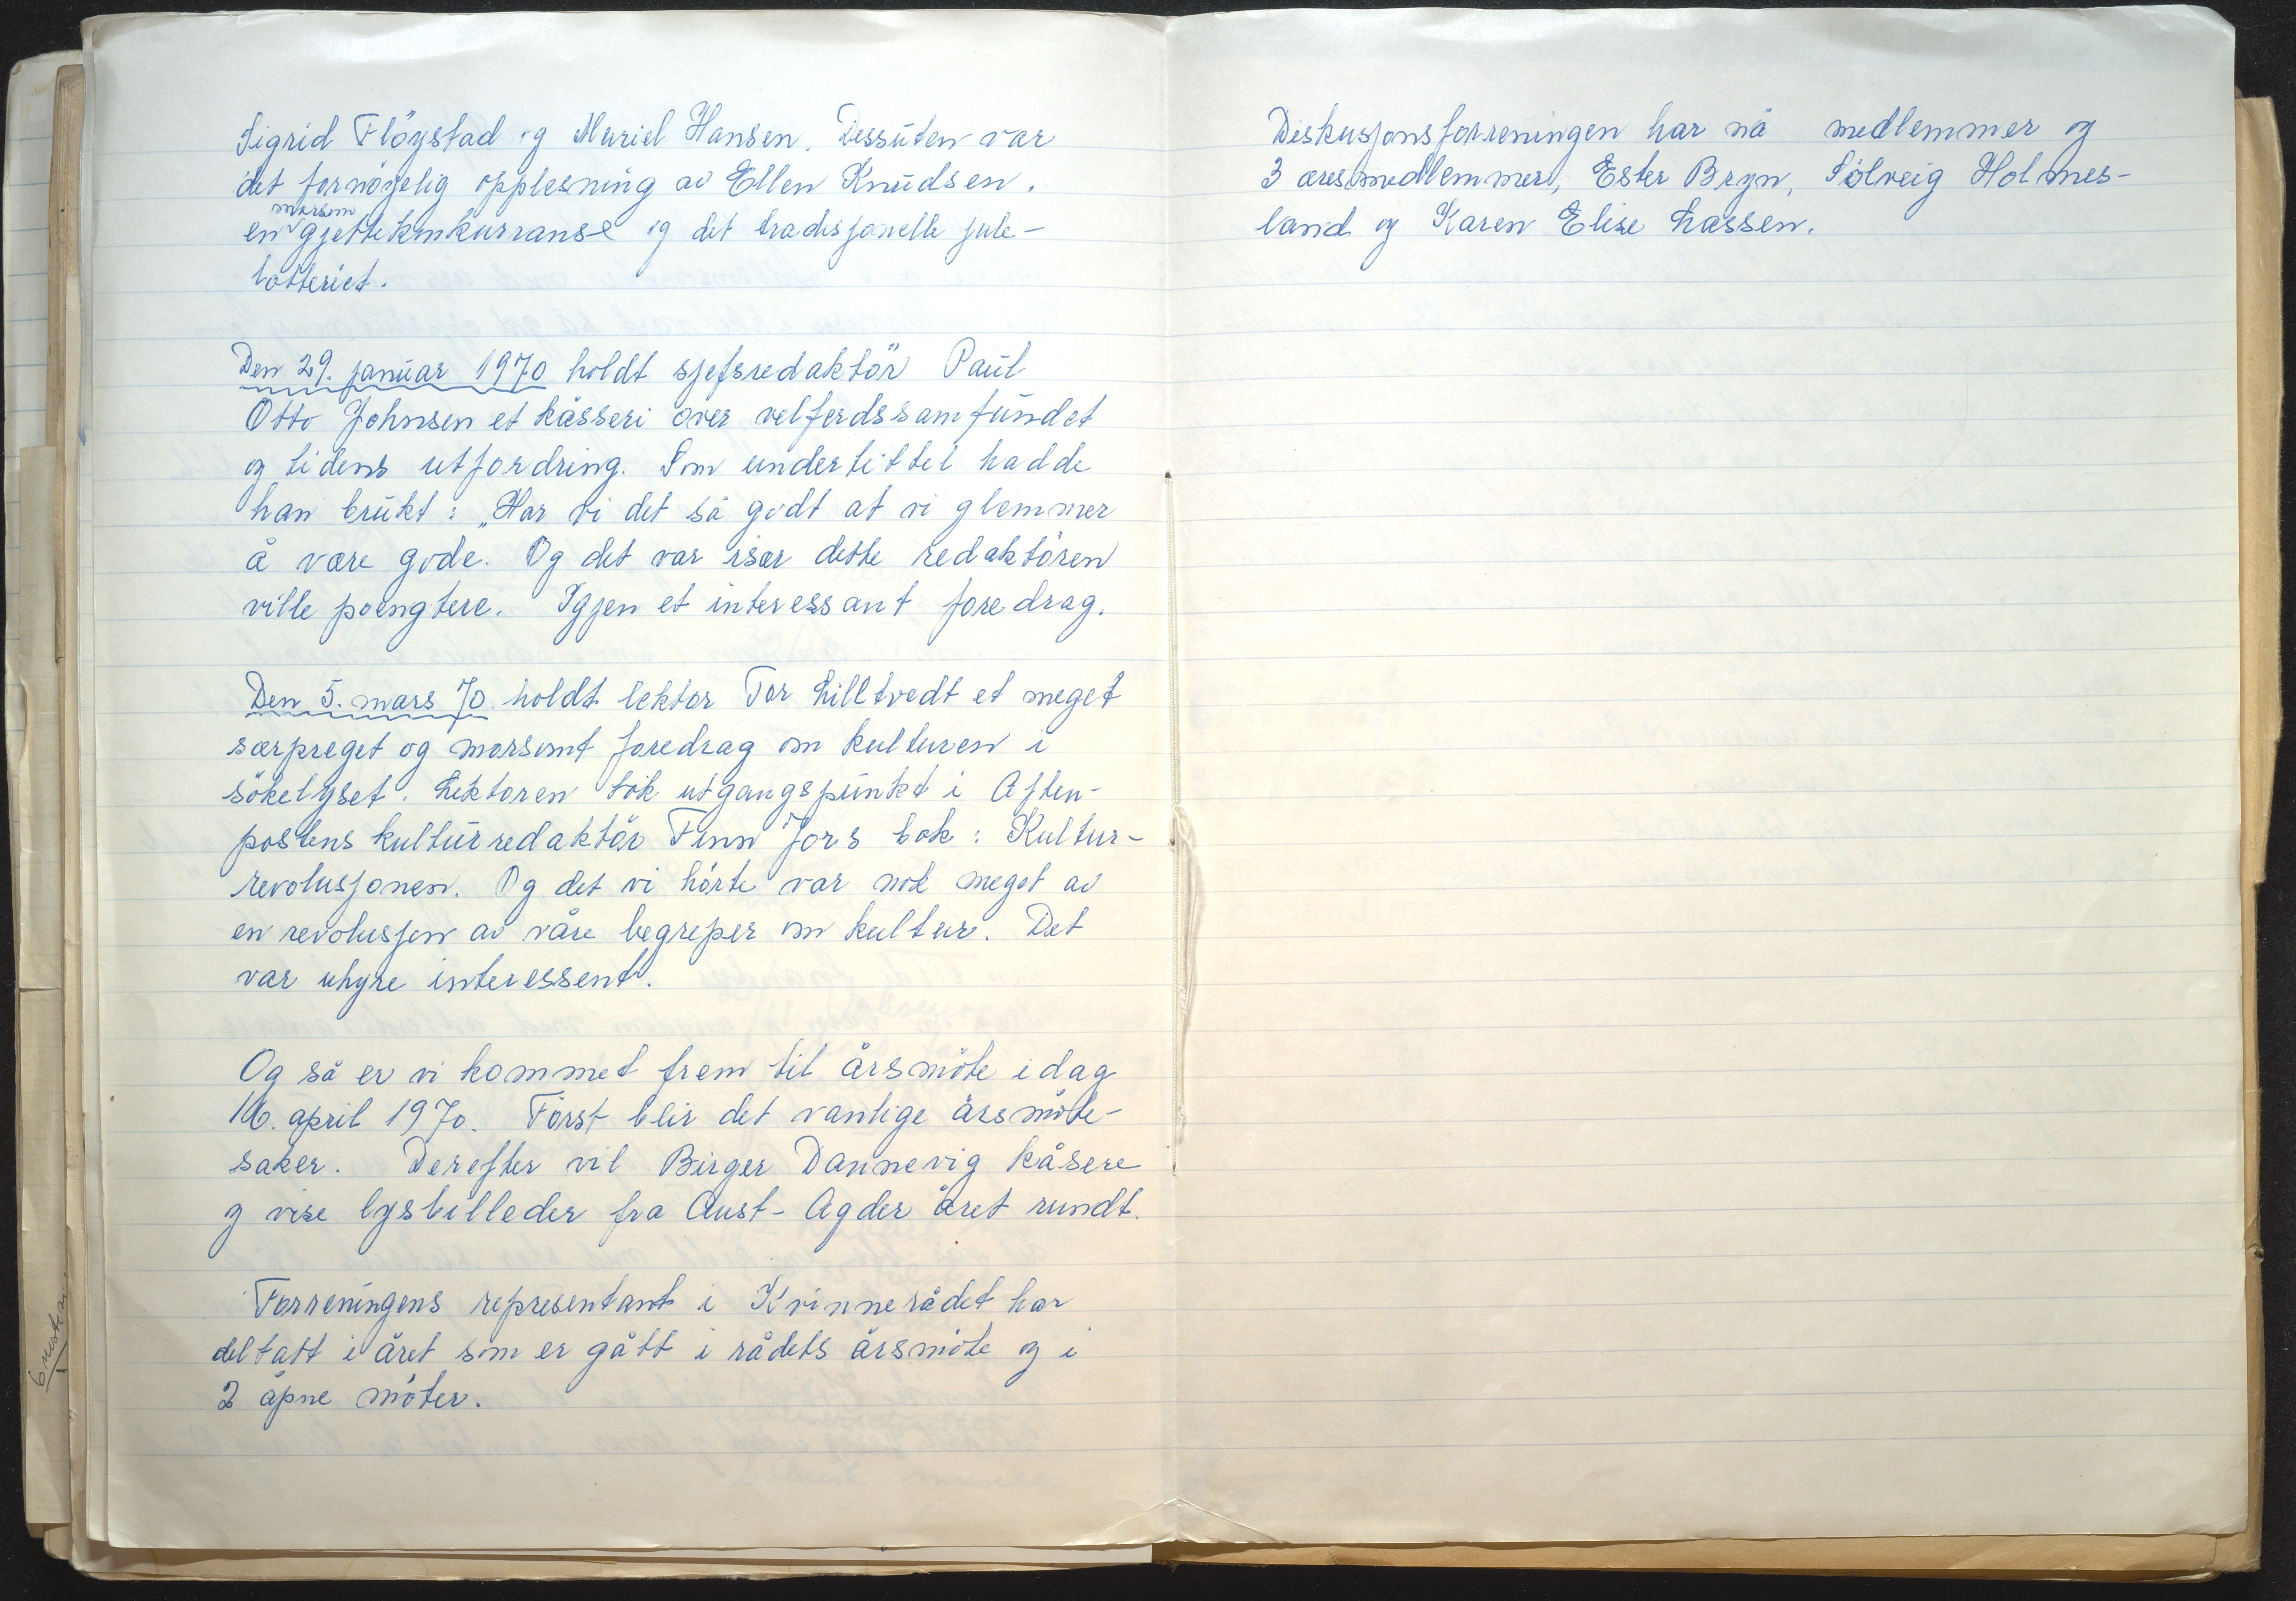 Sigrid Flöystad og Muriel Hansen. Dessuten var
det fornöyelig opplesning av Ellen Knudsen.
en morsom gjettekonkurranse og det tradisjonelle jule-
lotteriet.
Den 29. januar 1970 holdt sjefsredaktör Paul
Otto Johnsen et kåsseri over velferdssamfundet
og tidens utfordring. Som undertittel hadde
han brukt: „Har vi det så godt at vi glemmer
å være gode. Og det var især dette redaktören
ville poengtere. Igjen et interessant foredrag.
Den 5. mars 70. holdt lektor Tor Lilltvedt et meget
særpreget og morsomt foredrag om kulturen i
sökelyset. Lektoren tok utgangspunkt i Aften-
postens kulturredaktör Finn Jors bok: Kultur-
revolusjonen. Og det vi hörte var nok meget av
en revolusjon av våre begreper om kultur. Det
var uhyre interessent.
Og så er vi kommet frem til årsmöte idag
16. april 1970. Först blir det vanlige årsmöte-
saker. Derefter vil Birger Dannevig kåsere
og vise lysbilleder fra Aust-Agder året rundt.
Forreningens representant i Kvinnerådet har
deltatt i året som er gått i rådets årsmöte og i
2 åpne möter.
Diskusjonsforreningen har nå medlemmer og
3 æresmedlemmer, Ester Bryn, Sölveig Holmes-
land og Karen Elise Lassen.